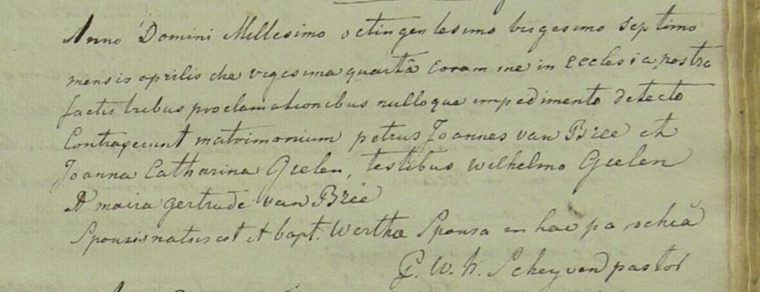 Anno Domini Millesimo octingentesimo vigesimo septimo
mensis aprilis die vigesima quartâ coram me in Ecclesia nostra
factis tribus proclamationibus nulloque impedimento detecto
Contraxerunt matrimonium petrus Joannes van Bree et
Joanna Catharina Gielen, testibus Wilhelmo Gielen
et maria gertrude van Bree
Sponsus natus est et bapt. Werthæ Sponsa in hac parochiâ
G. W. h. Scheyven pastor